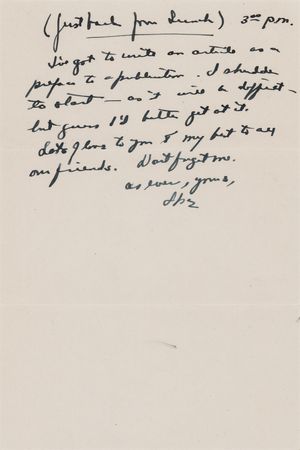 (Just back from lunch) 3 00 P.M.
I've got to write an article as a
preface to a publication. I shudder
to start — as it will be difficult —
but guess I'd better get at it.
Lots of love to you & my best to all
our friends. Don't forget me.
as ever, yours,